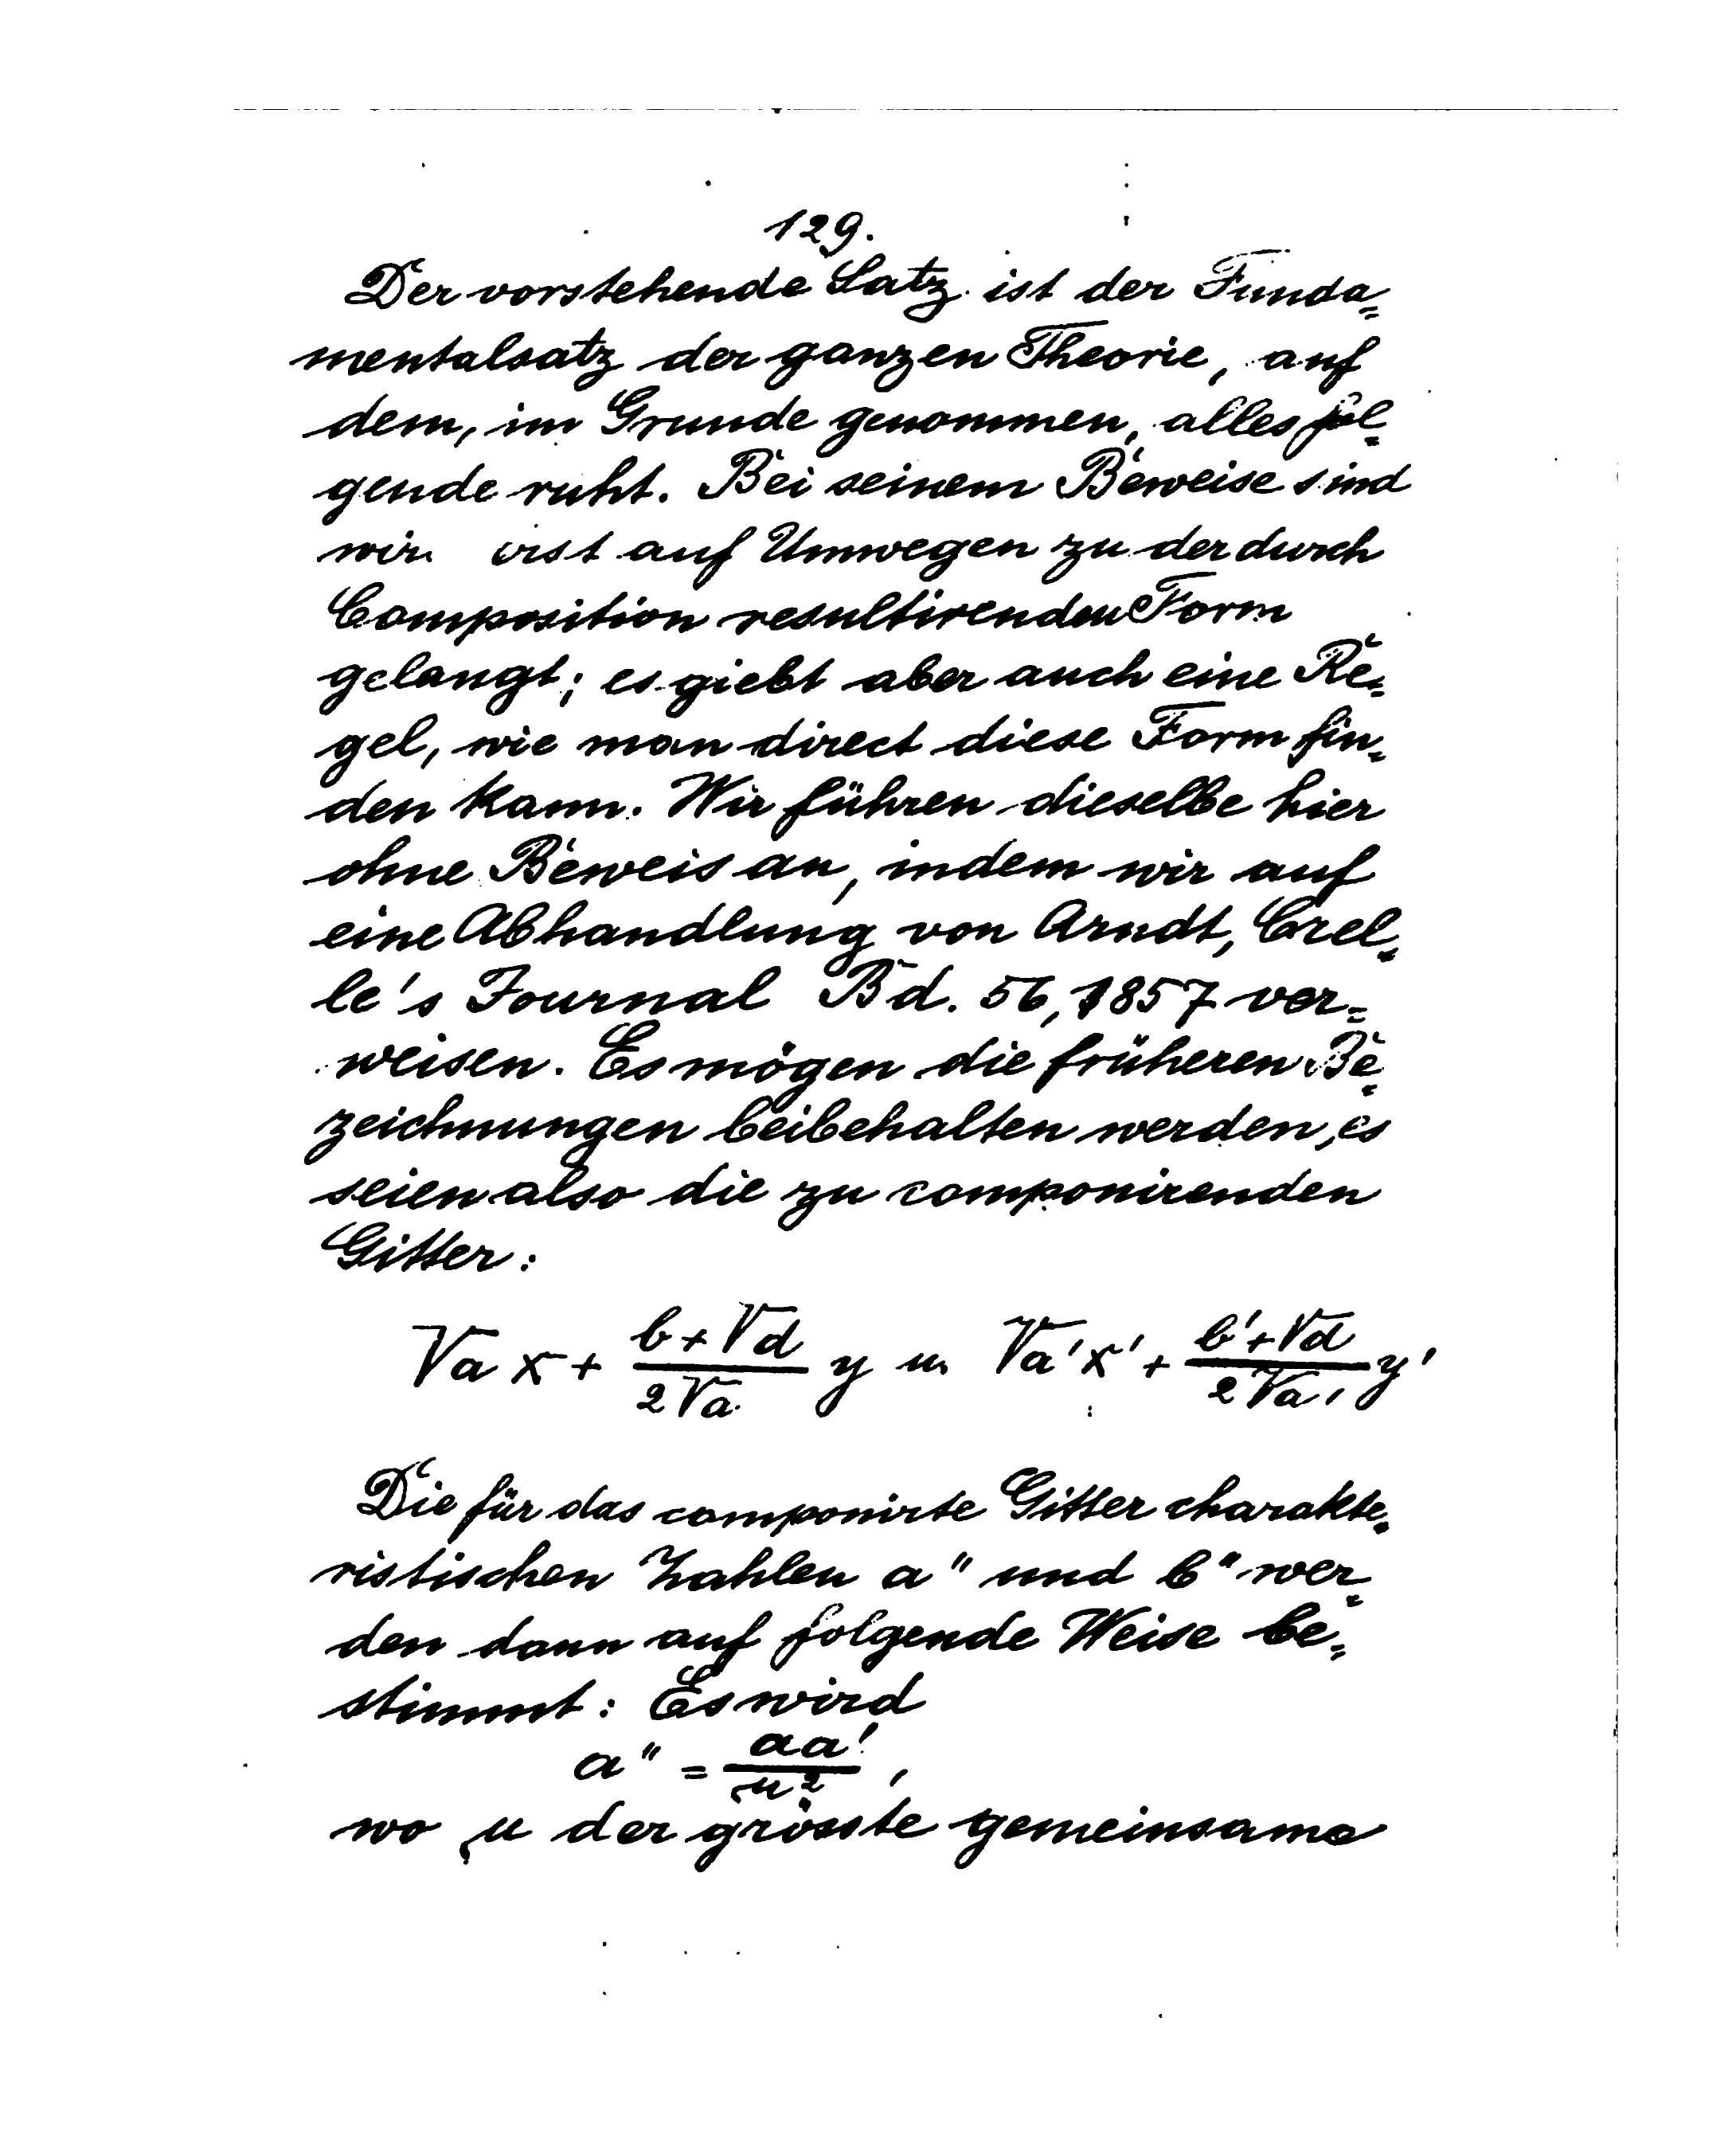 129.
Der vorstehende Satz ist der Funda=
mentalsatz der ganzen Theorie, auf
dem, im Grunde genommen, alles fol=
gende ruht. Bei seinem Beweise sind
wir erst auf Umwegen zu der durch
Composition resultirenden Form
gelangt; es giebt aber auch eine Re=
gel, wie man direct diese Form fin=
den kann. Wir führen dieselbe hier
ohne Beweis an, indem wir auf
eine Abhandlung von Arndt, Crel=
le's Journal Bd. 56, 1857 ver=
weisen. Es mögen die früheren Be=
zeichnungen beibehalten werden, es
seien also die zu componirenden
Gitter:
√a x + (b+√d)/(2√a) y u. √a' x' + (b'+√d)/(2√a') y'
Die für das componirte Gitter charakte=
ristischen Zahlen a" und b" wer=
den dann auf folgende Weise be=
stimmt: Es wird
a" = aa'/μ²,
wo μ der grösste gemeinsame